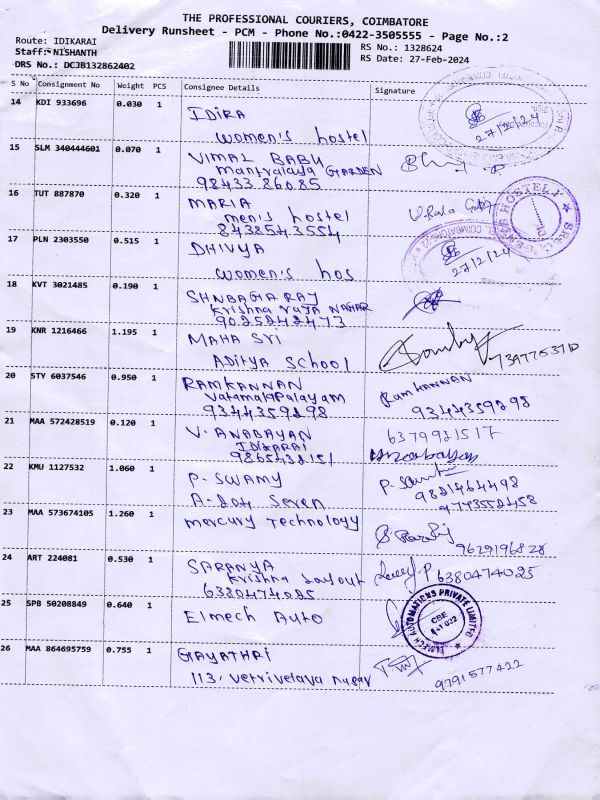 THE PROFESSIONAL COURIERS, COIMBATORE
Delivery Runsheet - PCM - Phone No.:0422-3505555 - Page No.:2
Route: IDIKARAI
RS No.: 1328624
Staff: NISHANTH
RS Date: 27-Feb-2024
DRS No.: DCJB132862402
S No Consignment No Weight PCS Consignee Details Signature
14 KDI 933696 0.030 1
IDIRA
women's hostel
27/2/24
15 SLM 340444601 0.070 1
VIMAL BABU
Mantralaya GARDEN
98433 86085
16 TUT 887870 0.320 1
MARIA
men's hostel
8438543554
17 PLN 2303550 0.515 1
DHIVYA
women's hos
27/2/24
18 KVT 3021485 0.190 1
SHNBAGARAJ
Krishna raja NAGAR
9025242473
19 KNR 1216466 1.195 1
MAHA SRI
Aditya school
20 STY 6037546 0.950 1
RAMKANNAN
Vatamalapalayam
9344359298
Ramkannan
9344359298
21 MAA 572428519 0.120 1
V. ANABAYAN
IDIKARAI
9865432151
6379921517
22 KMU 1127532 1.060 1
P. SWAMY
A-204 Seven
9821464498
9773552458
23 MAA 573674105 1.260 1
mercury Technology
9629196828
24 ART 224081 0.530 1
SARANYA
Krishna Layout
6380474025
6380474025
25 SPB 50208849 0.640 1
Elmech Auto
AUTOMATIONS PRIVATE LIMITED
CBE
26 MAA 864695759 0.755 1
GAYATHRI
113, Vetrivelava nagar
9791577422